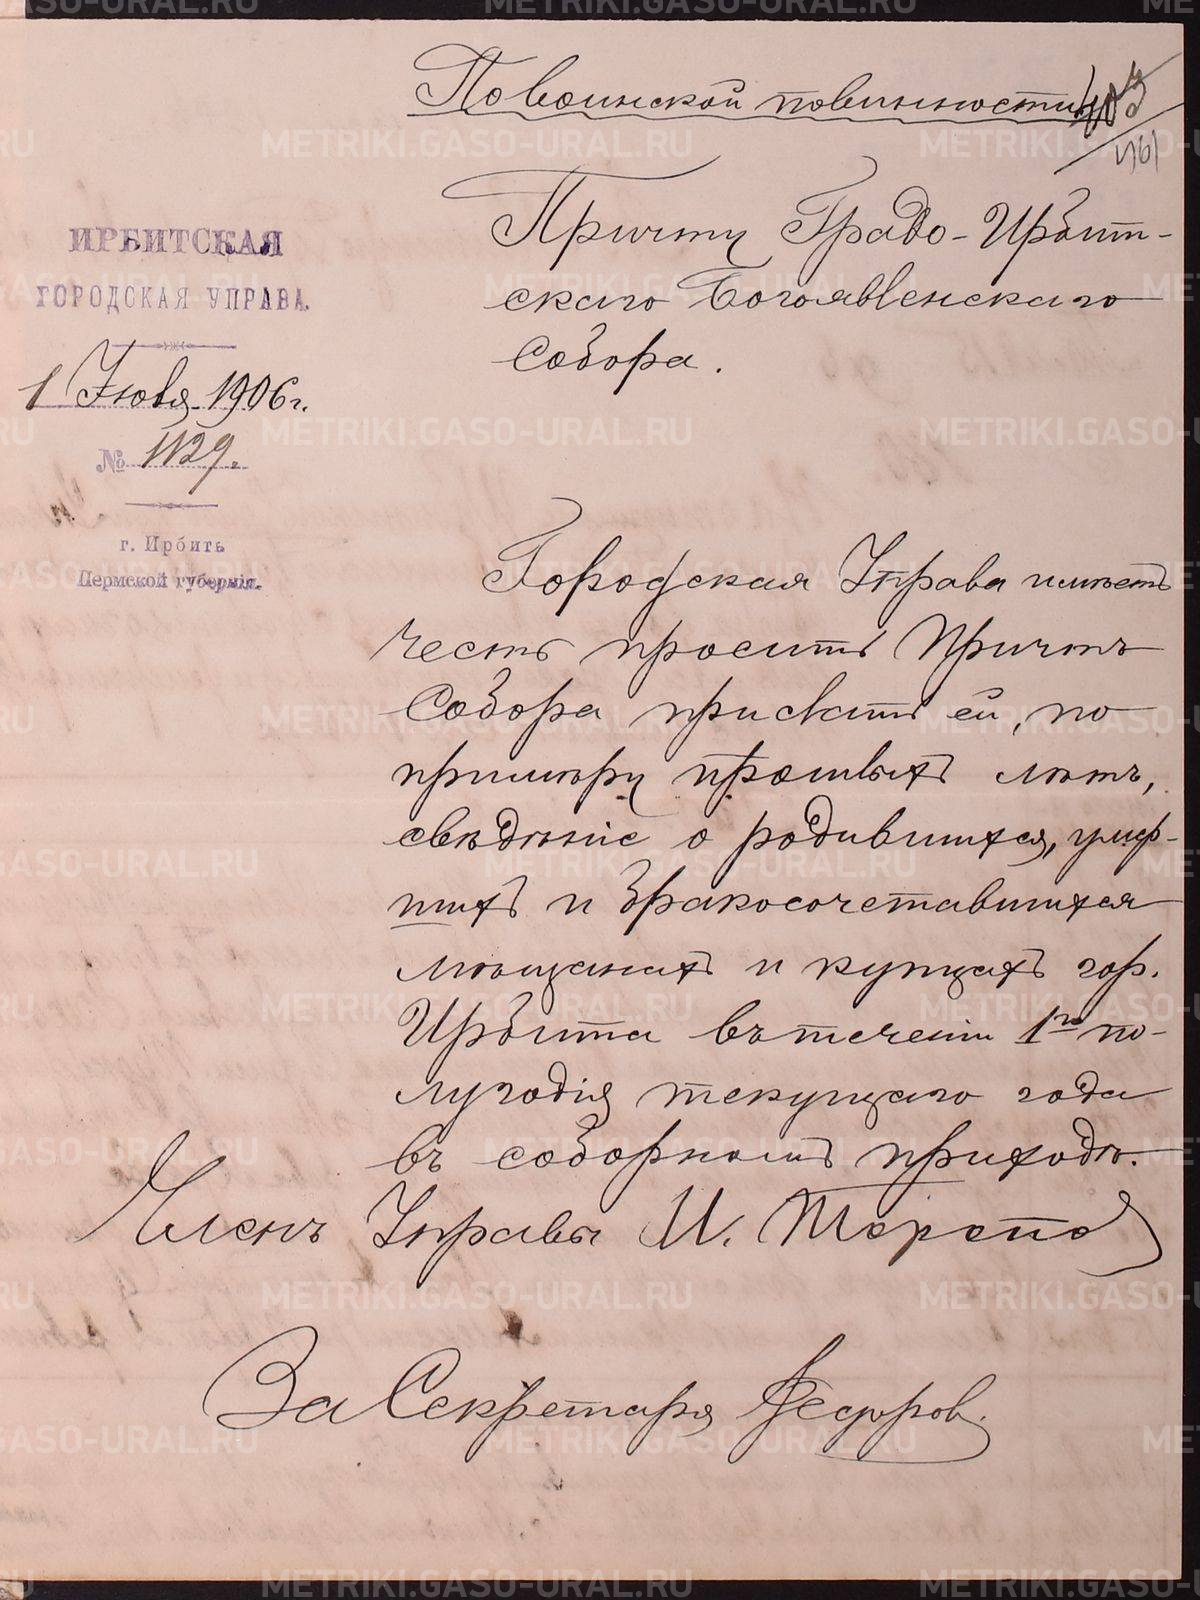 По воинской повинности
403
461
Причту Градо-Ирбит-
скаго Богоявленскаго
Собора.
ИРБИТСКАЯ
ГОРОДСКАЯ УПРАВА.
1 Июля 1906 г.
№ 1129.
г. Ирбить
Пермской губерніи.
Городская Управа имѣетъ
честь просить Причтъ
Собора прислать ей, по
примѣру прошлыхъ лѣтъ,
свѣдѣніе о родившихся, умер-
шихъ и бракосочетавшихся
мѣщанахъ и купцахъ гор.
Ирбита въ теченіи 1го по-
лугодія текущаго года
въ соборномъ приходѣ.
Членъ Управы И.
За Секретаря Федоров.
METRIKI.GASO-URAL.RU